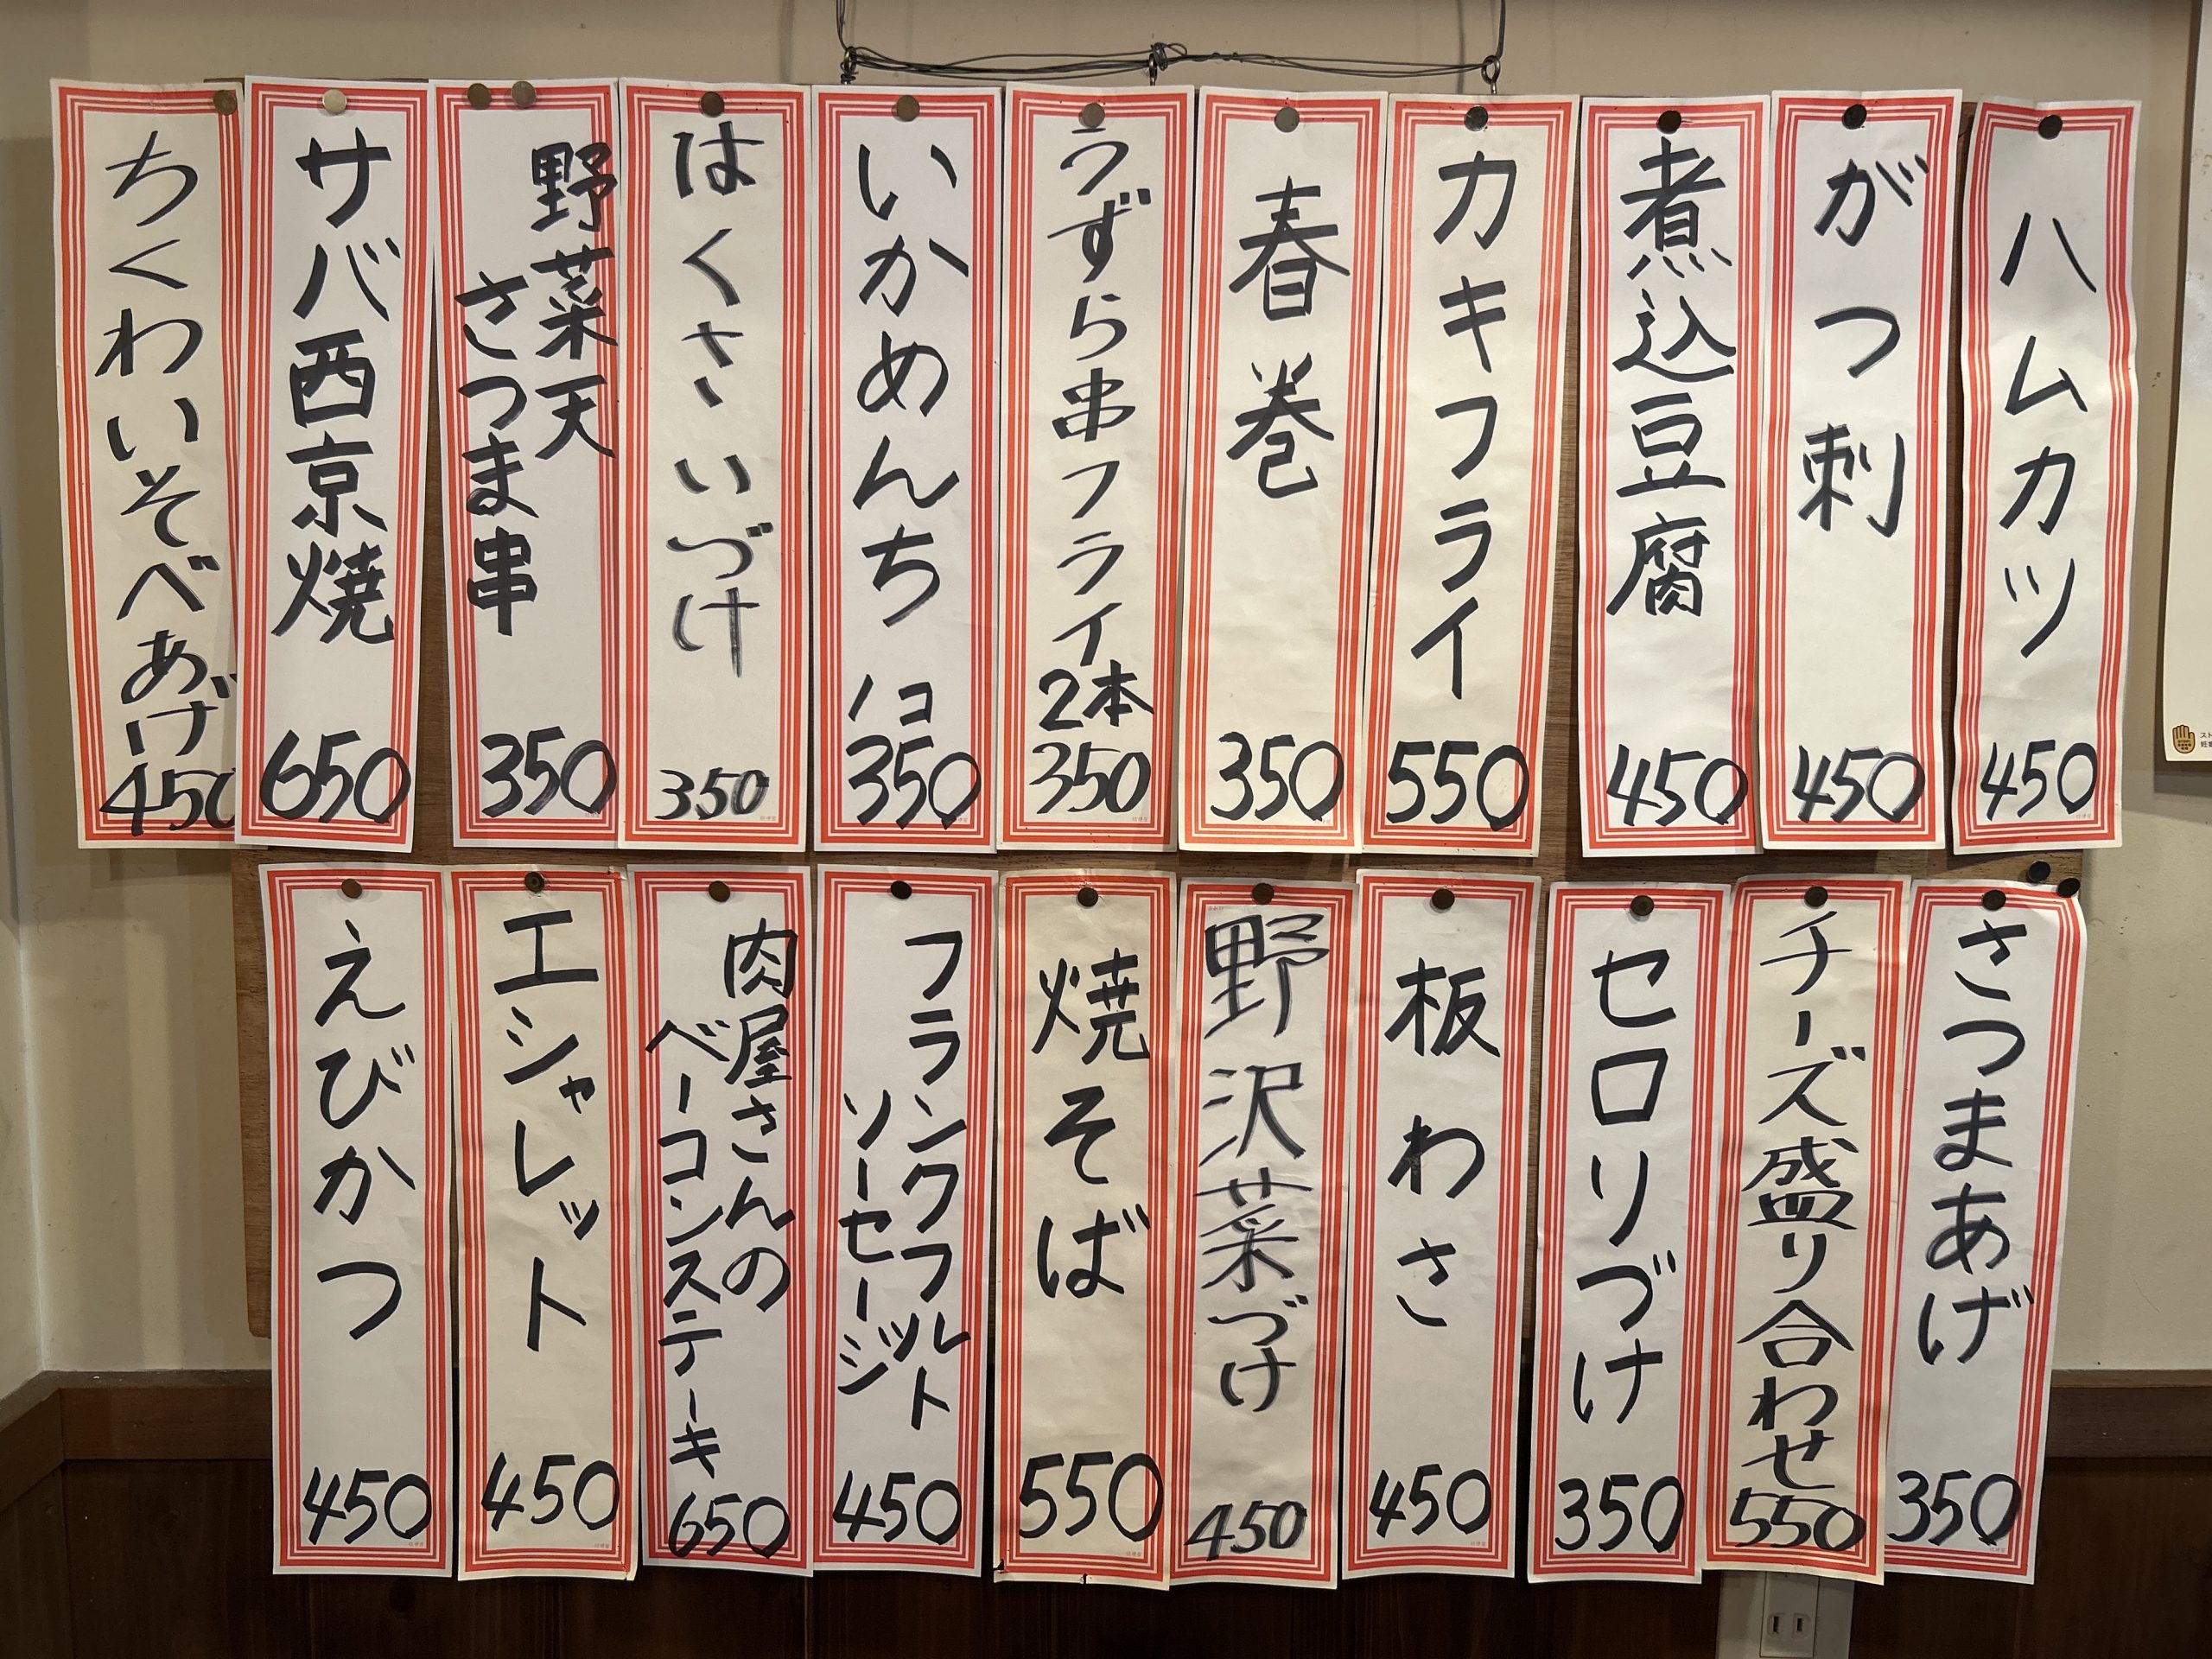 ハムカツ
450
がつ刺
450
煮込豆腐
450
カキフライ
550
春巻
350
うずら串フライ
2本
350
いかめんち
1コ
350
はくさいづけ
350
野菜天
さつま串
350
サバ西京焼
650
ちくわいそべあげ
450
さつまあげ
350
チーズ盛り合わせ
550
セロリづけ
350
板わさ
450
野沢菜づけ
450
焼そば
550
フランクフルト
ソーセージ
450
肉屋さんの
ベーコンステーキ
650
エシャレット
450
えびかつ
450